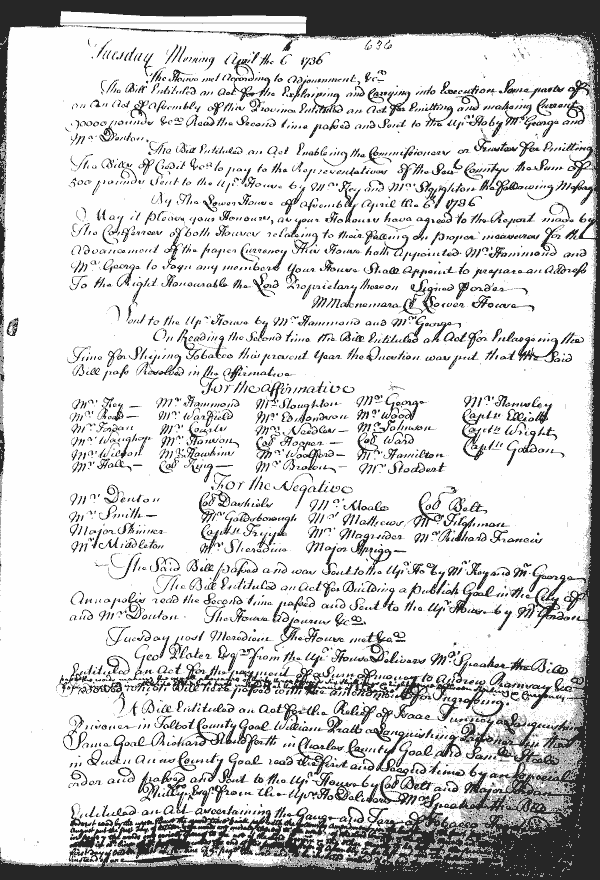 636
Tuesday Morning April the 6 1736
The House met According to Adjournment &ca
The Bill Entituled an Act for the Explaining and Carrying into Execution Some parts of
an Act of Assembly of this Province Entituled an Act for Emitting and making Current
90000 pounds &ca Read the Second time passed and Sent to the Upr Ho by Mr George and
Mr Denton
The Bill Entituled an Act Enabling the Commissioners or Trustees for Emitting
The Bills of Credit &ca to pay to the Representatives of the Sevl Countys the Sum of
500 pounds Sent to the Upr House by Mr Key and Mr Stoughton the following Message
By The Lower House of Assembly April the 6th 1736
May it please your Honours, as your Honours have agreed to the Report made by
The Conferees of both Houses relating to their falling on proper measures for the
Advancement of the paper Currency This House hath Appointed Mr Hammond and
Mr George to Joyn any members Your House Shall Appoint to prepare an Address
To the Right Honourable the Lord Proprietary thereon Signed P order
M Macnemara Cl Lower House
Sent to the Upr House by Mr Hammond and Mr George
On Reading the Second time the Bill Entituled an Act for Enlargeing the
Time for Shiping Tobacco this present Year the Question was put that the Said
Bill pass Resolved in the Affirmative
For the Affirmative
Mr Key Mr Hammond Mr Stoughton Mr George Mr Hemsley
Mr Read Mr Warfield Mr Edmondson Mr Wood Captn Elliott
Mr Jordan Mr Courts Mr Needles Mr Johnson Captn Wright
Mr Waughop Mr Hanson Col Hooper Col Ward Captn Gordon
Mr Wilson Mr Hawkins Mr Woolford Mr Hamilton
Mr Hall Col King Mr Brown Mr Stoddert
For the Negative
Mr Denton Col Dashiels Mr Moale Col Belt
Mr Smith Mr Goldsborough Mr Mathews Mr Tilghman
Major Skinner Captn Tryppe Mr Magruder Mr Richard Francis
Mr Middleton Mr Sheredine Major Sprigg
The Said Bill passed and was Sent to the Upr Ho by Mr Key and Mr George
The Bill Entituled an Act for Building a publick Goal in the City of
Annapolis read the Second time passed and Sent to the Upr House by Mr Gordon
and Mr Denton The House adjourns &ca
Tuesday post Meridiem The House met &ca
Geo Plater Esqr from the Upr House Delivers Mr Speaker the Bill
Entituled an Act for the payment of a Sum of money to Andrew Ranway &ca
which Bill
A Bill Entituled an Act for the Relief of Isaac a Languishing
Prisoner in Talbot County Goal William Pratt a Languishing Prisoner in the
Same Goal Richard in Charles County Goal and Saml
in Queen Anns County Goal read the first and Second time by an Especial
order and passed and Sent to the Upr House by Col Belt and Major
Philip Esqr from the Upr Ho Delivers Mr Speaker the Bill
Entituled an Act ascertaining the Gauge and Tare of Tobacco